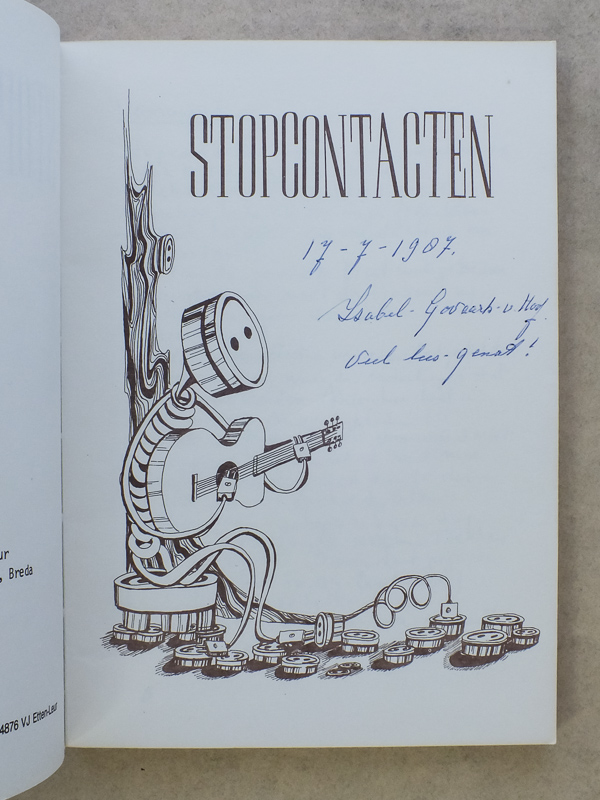 STOPCONTACTEN
17-7-1987.
Isabel-Govaarts-v. Hoof.
veel lees-genot!
ur
, Breda
4876 VJ Etten-Leur